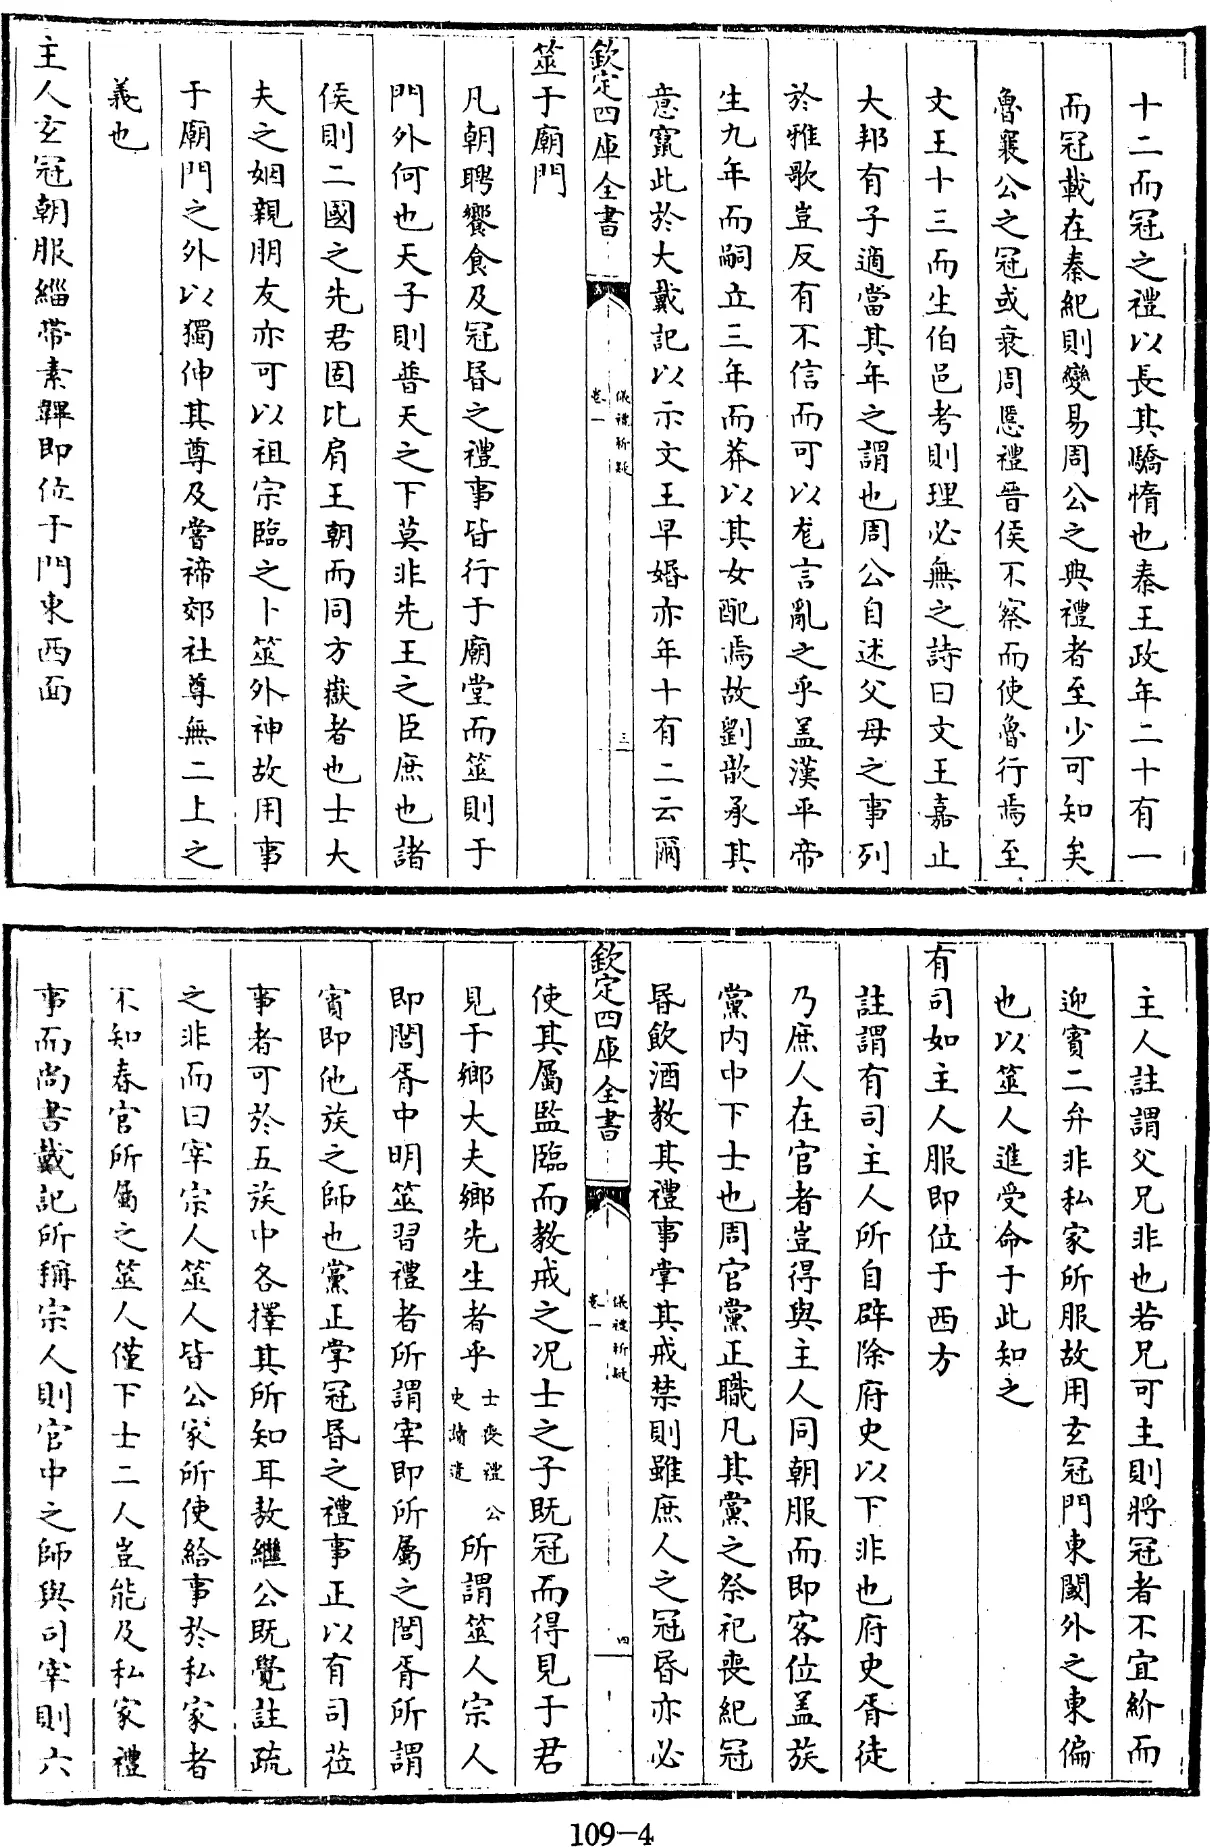 十二而冠之禮以長其驕惰也秦王政年二十有一
而冠載在秦紀則變易周公之典禮者至少可知矣
魯襄公之冠或衰周慝禮晉侯不察而使魯行焉至
文王十三而生伯邑考則理必無之詩曰文王嘉止
大邦有子適當其年之謂也周公自述父母之事列
於雅歌豈反有不信而可以尨言亂之乎盖漢平帝
生九年而嗣立三年而莽以其女配焉故劉歆承其
意竄此於大戴記以示文王早婚亦年十有二云爾
欽定四庫全書
儀禮析疑
卷一
三
筮于廟門
凡朝聘饗食及冠昏之禮事皆行于廟堂而筮則于
門外何也天子則普天之下莫非先王之臣庶也諸
侯則二國之先君固比肩王朝而同方嶽者也士大
夫之姻親朋友亦可以祖宗臨之卜筮外神故用事
于廟門之外以獨伸其尊及嘗禘郊社尊無二上之
義也
主人玄冠朝服緇帶素韠即位于門東西面
主人註謂父兄非也若兄可主則將冠者不宜紒而
迎賓二弁非私家所服故用玄冠門東闑外之東偏
也以筮人進受命于此知之
有司如主人服即位于西方
註謂有司主人所自辟除府史以下非也府史胥徒
乃庶人在官者豈得與主人同朝服而即客位盖族
黨内中下士也周官黨正職凡其黨之祭祀喪紀冠
昏飲酒教其禮事掌其戒禁則雖庶人之冠昏亦必
欽定四庫全書
儀禮析疑
卷一
四
使其屬監臨而教戒之况士之子既冠而得見于君
見于鄉大夫鄉先生者乎士喪禮公史讀遣所謂筮人宗人
即閭胥中明筮習禮者所謂宰即所屬之閭胥所謂
賓即他族之師也黨正掌冠昏之禮事正以有司莅
事者可於五族中各擇其所知耳敖繼公既覺註疏
之非而曰宰宗人筮人皆公家所使給事於私家者
不知春官所屬之筮人僅下士二人豈能及私家禮
事而尚書戴記所稱宗人則官中之師與司宰則六
109-4